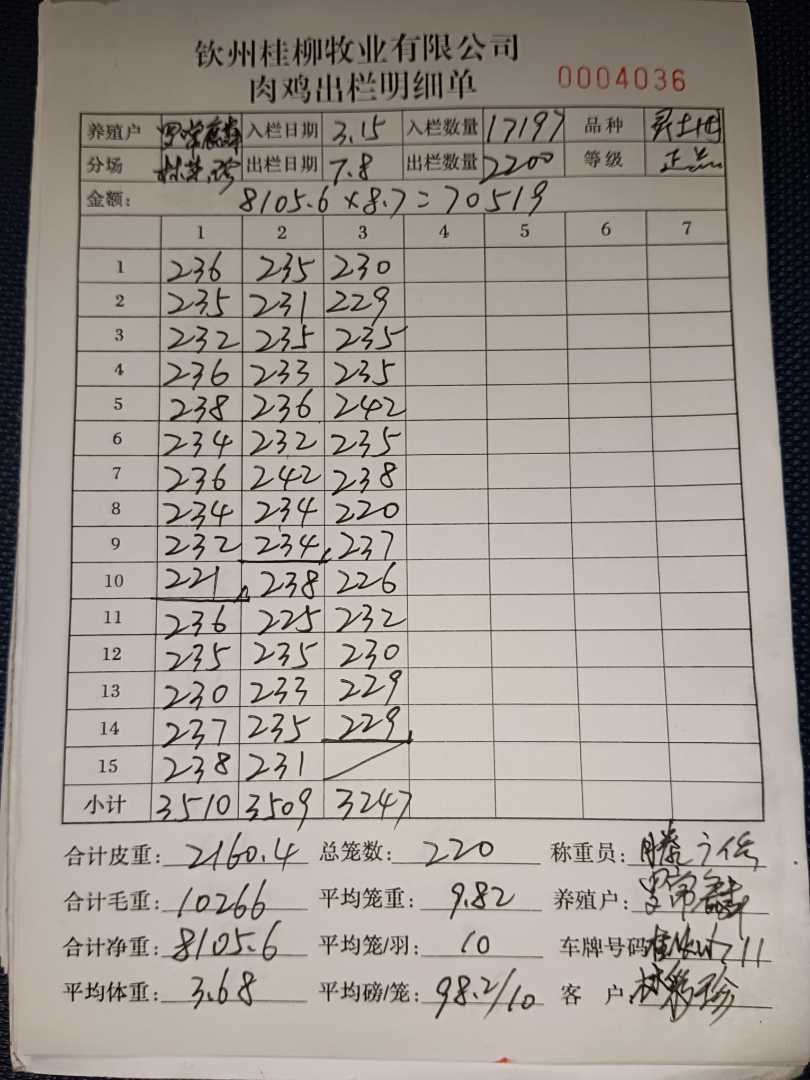 钦州桂柳牧业有限公司
肉鸡出栏明细单 0004036
养殖户 入栏日期 3.15 入栏数量 17197 品种
分场 出栏日期 7.8 出栏数量 2200 等级 正品
金额: 8105.6×8.7=70519
1 2 3 4 5 6 7
1 236 235 230
2 235 231 229
3 232 235 235
4 236 233 235
5 238 236 242
6 234 232 235
7 236 242 238
8 234 234 220
9 232 234 237
10 221 238 226
11 236 225 232
12 235 235 230
13 230 233 229
14 237 235 229
15 238 231
小计 3510 3509 3247
合计皮重: 2160.4 总笼数: 220 称重员:
合计毛重: 10266 平均笼重: 9.82 养殖户:
合计净重: 8105.6 平均笼/羽: 10 车牌号码
平均体重: 3.68 平均磅/笼: 98.2/10 客 户: